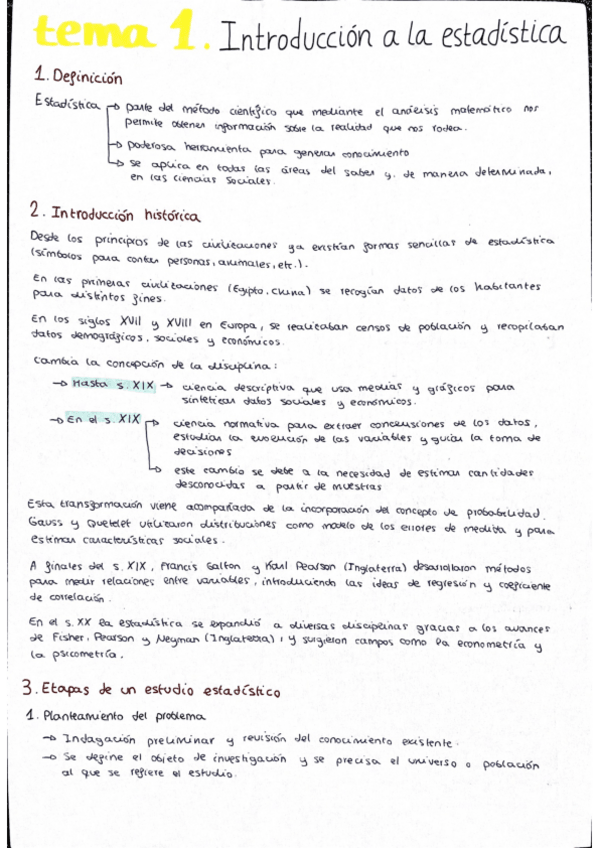 tema 1. Introducción a la estadística
1. Definición
Estadística → parte del método científico que mediante el análisis matemático nos
permite obtener información sobre la realidad que nos rodea.
→ poderosa herramienta para generar conocimiento
→ se aplica en todas las áreas del saber y, de manera determinada,
en las ciencias sociales.
2. Introducción histórica
Desde los principios de las civilizaciones ya existían formas sencillas de estadística
(símbolos para contar personas, animales, etc.).
En las primeras civilizaciones (Egipto, China) se recogían datos de los habitantes
para distintos fines.
En los siglos XVII y XVIII en Europa, se realizaban censos de población y recopilaban
datos demográficos, sociales y económicos.
Cambia la concepción de la disciplina:
→ Hasta s. XIX → ciencia descriptiva que usa medias y gráficos para
sintetizar datos sociales y económicos.
→ En el s. XIX → ciencia normativa para extraer conclusiones de los datos,
estudiar la evolución de las variables y guiar la toma de
decisiones
→ este cambio se debe a la necesidad de estimar cantidades
desconocidas a partir de muestras
Esta transformación viene acompañada de la incorporación del concepto de probabilidad.
Gauss y Quetelet utilizaron distribuciones como modelo de los errores de medida y para
estimar características sociales.
A finales del s. XIX, Francis Galton y Karl Pearson (Inglaterra) desarrollaron métodos
para medir relaciones entre variables, introduciendo las ideas de regresión y coeficiente
de correlación.
En el s. XX la estadística se expandió a diversas disciplinas gracias a los avances
de Fisher, Pearson y Neyman (Inglaterra), y surgieron campos como la econometría y
la psicometría.
3. Etapas de un estudio estadístico
1. Planteamiento del problema
→ Indagación preliminar y revisión del conocimiento existente.
→ Se define el objeto de investigación y se precisa el universo o población
al que se refiere el estudio.